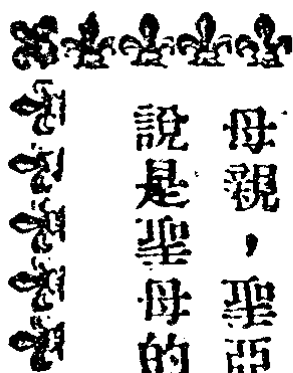 母親，聖亞
說是聖母的